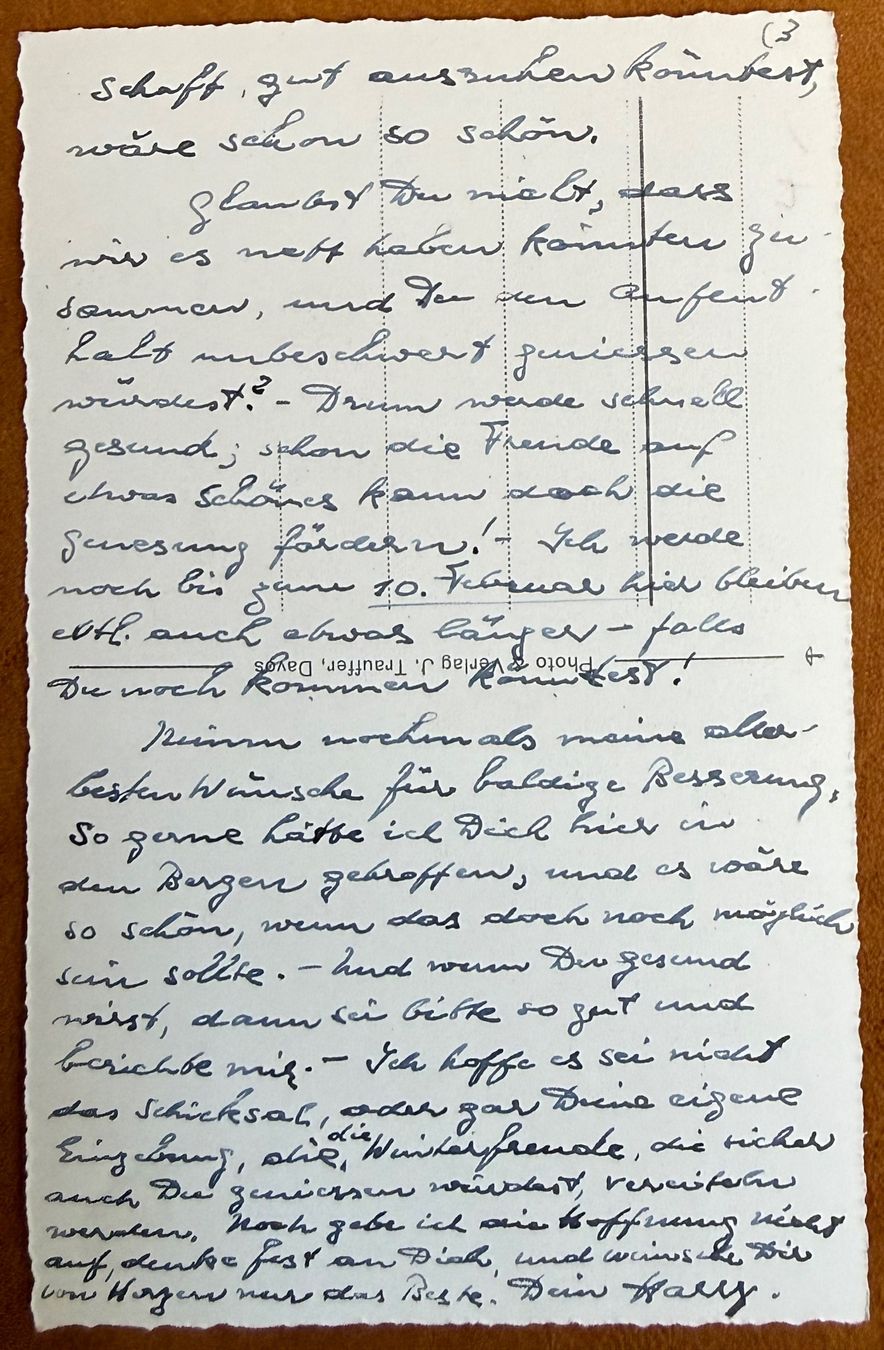 (3
schaft, gut ausruhen könntest,
wäre schon so schön.
Glaubst Du nicht, dass
wir es nett haben könnten zu-
sammen, und Du den Aufent-
halt unbeschwert geniessen
würdest? - Drum werde schnell
gesund; schon die Freude auf
etwas Schönes kann doch die
Genesung fördern! - Ich werde
noch bis zum 10. Februar hier bleiben
evtl. auch etwas länger - falls
Photo & Verlag J. Trauffer, Davos
Du noch kommen könntest!
Nimm nochmals meine aller-
besten Wünsche für baldige Besserung,
So gerne hätte ich Dich hier in
den Bergen getroffen, und es wäre
so schön, wenn das doch noch möglich
sein sollte. - Und wenn Du gesund
wirst, dann sei bitte so gut und
berichte mir. - Ich hoffe es sei nicht
das Schicksal, oder gar Deine eigene
Eingebung, die, die Winterfreude, die sicher
auch Du geniessen würdest, vereiteln
werden. Noch gebe ich die Hoffnung nicht
auf, denke fest an Dich, und wünsche Dir
von Herzen nur das Beste. Dein Harry.